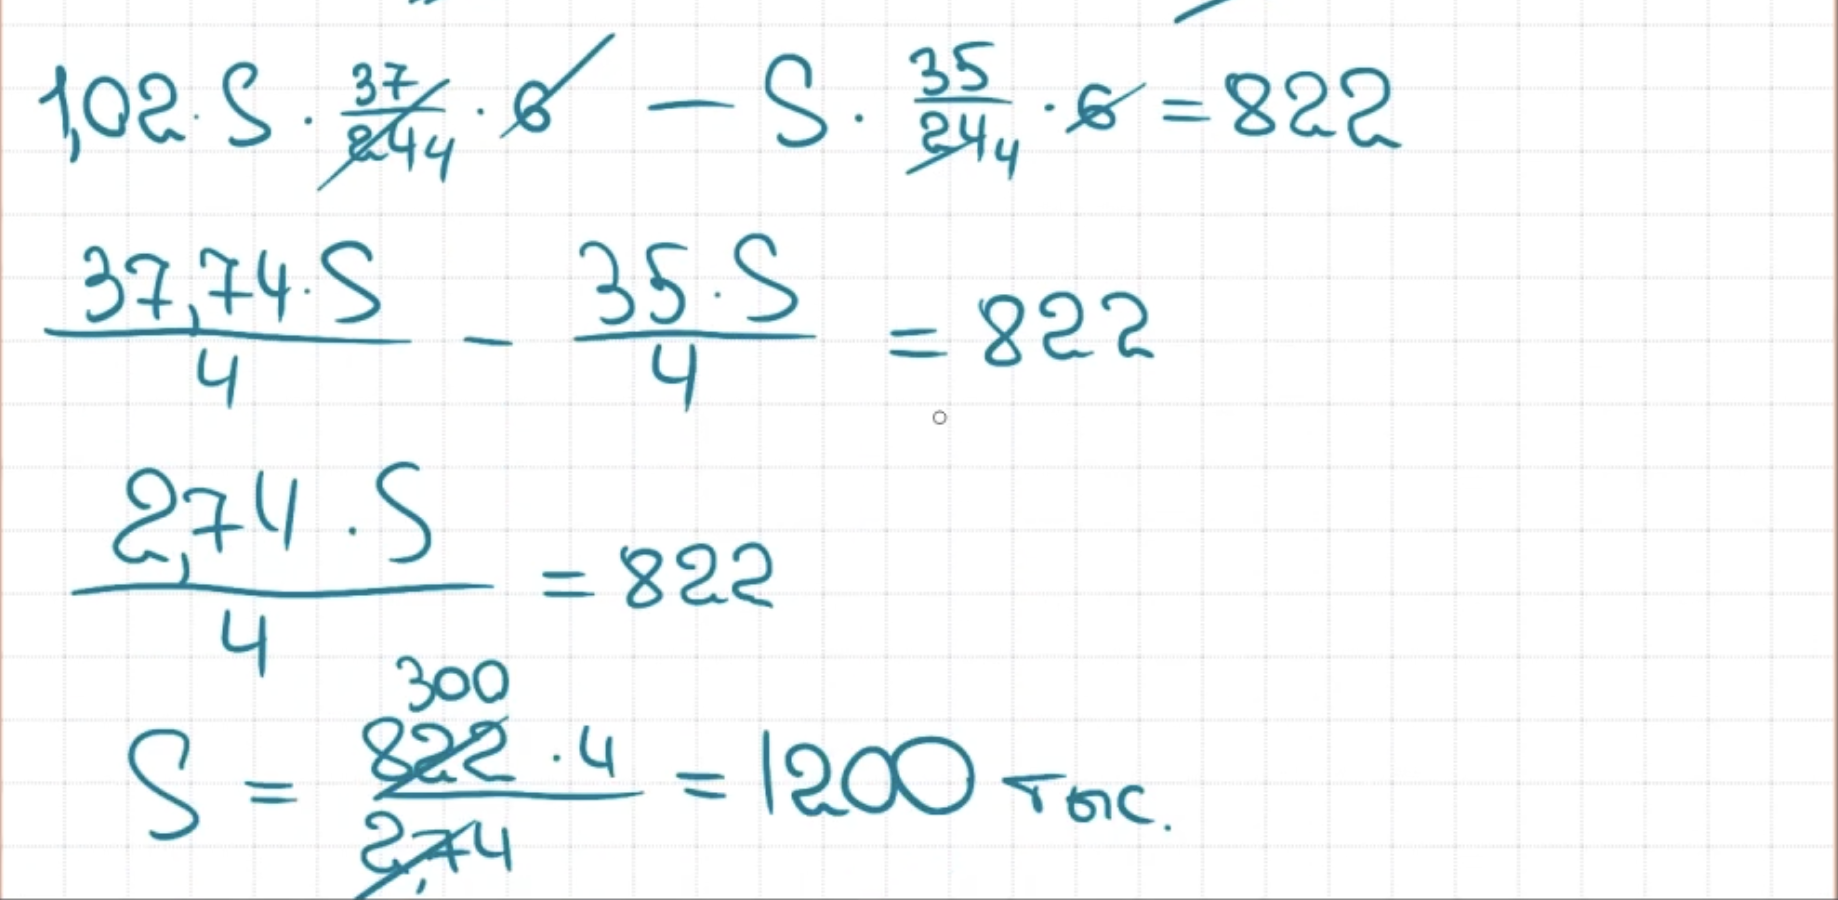 1,02 · S · 37/24 4 · 6 − S · 35/24 4 · 6 = 822
37,74 · S / 4 − 35 · S / 4 = 822
2,74 · S / 4 = 822
300
S = 822 · 4 / 2,74 = 1200 тыс.